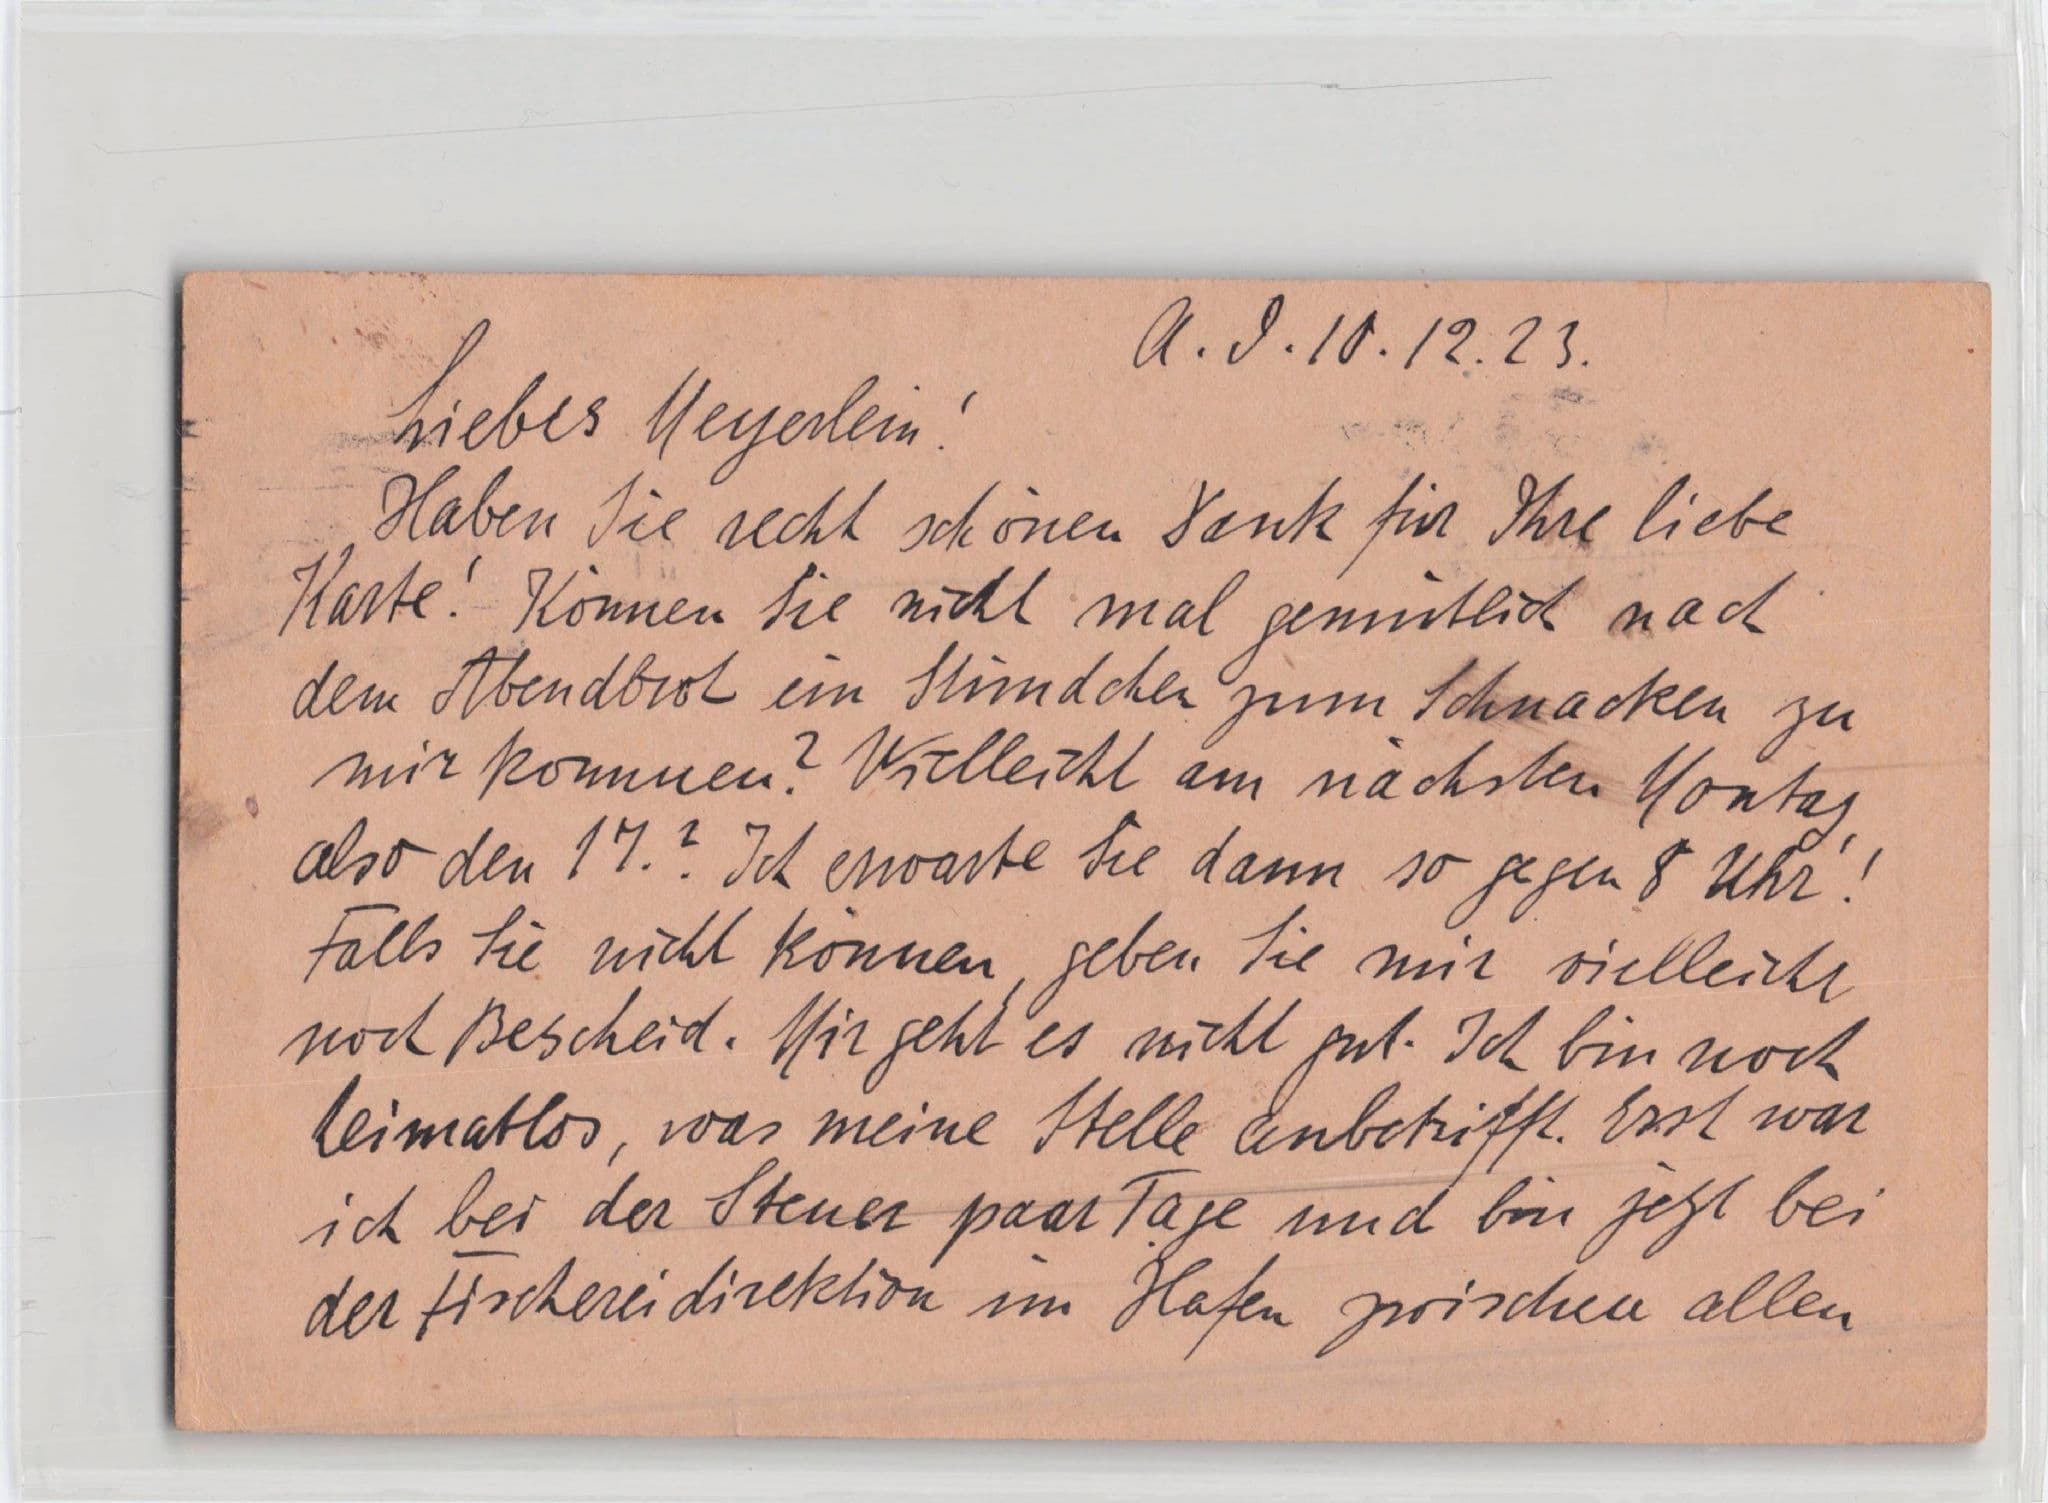 A. D. 10.12.23.
Liebes Meyerlein!
Haben Sie recht schönen Dank für Ihre liebe
Karte! Können Sie nicht mal gemütlich nach
dem Abendbrot ein Stündchen zum Schnacken zu
mir kommen? Vielleicht am nächsten Montag,
also den 17.? Ich erwarte Sie dann so gegen 8 Uhr!
Falls Sie nicht können, geben Sie mir vielleicht
noch Bescheid. Mir geht es nicht gut. Ich bin noch
heimatlos, was meine Stelle anbetrifft. Erst war
ich bei der Steuer paar Tage und bin jetzt bei
der Fischereidirektion im Hafen zwischen allen